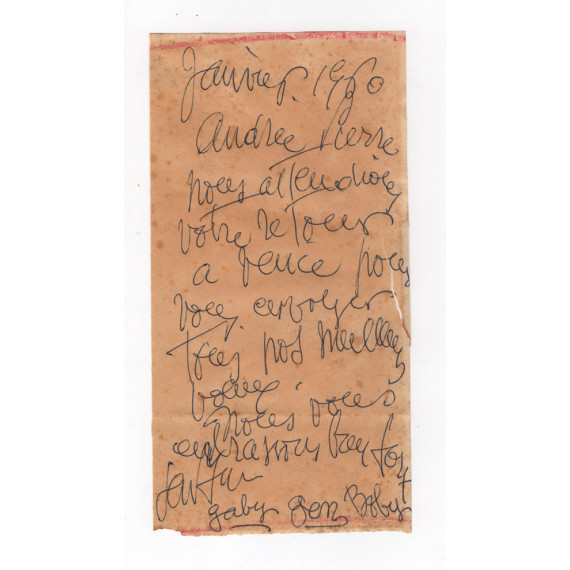 Janvier. 1960
Andrée Pierre
nous attendions
votre retour
a Vence pour
vous envoyer
tous nos meilleurs
voeux
Nous vous
embrassons bien fort
gaby Boby